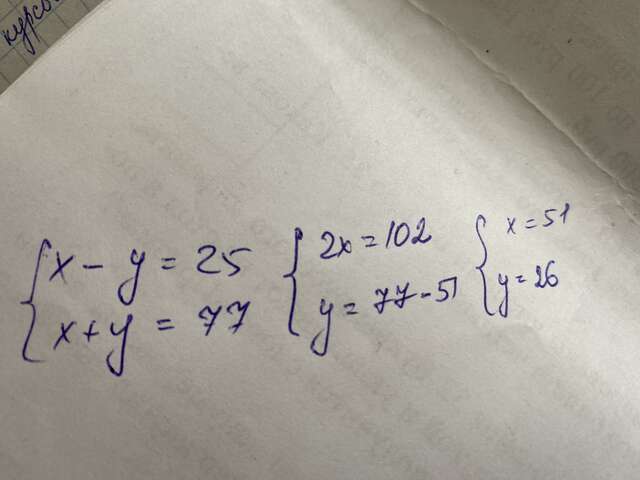 курсо
x - y = 25
x + y = 77
2x = 102
y = 77 - 51
x = 51
y = 26